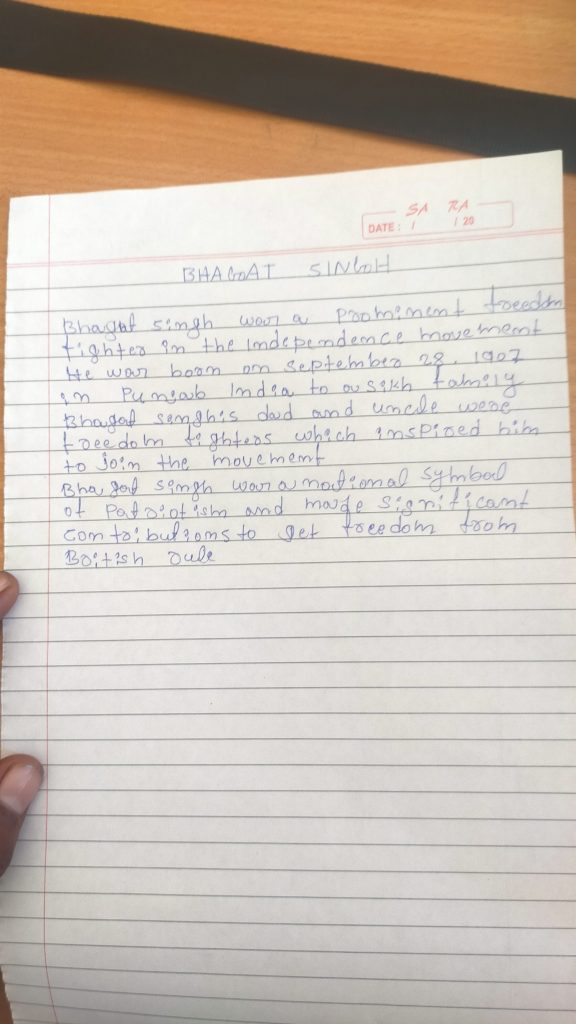 SA RA
DATE: / / 20
BHAGAT SINGH
Bhagat singh was a prominent freedom
fighter in the independence movement
He was born on september 28, 1907
in Punjab India to a sikh family
Bhagat singh's dad and uncle were
freedom fighters which inspired him
to join the movement
Bhagat singh was a national symbol
of Patriotism and made significant
contributions to get freedom from
British rule